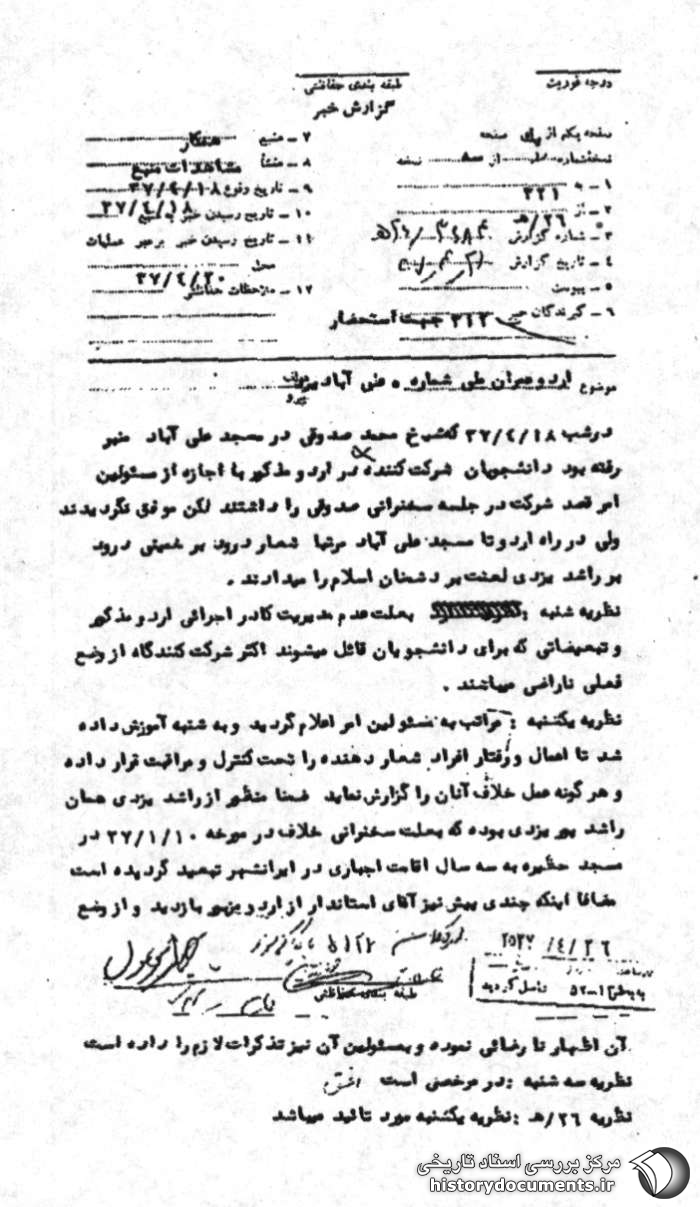 درجه فوریت
طبقه بندی حفاظتی
گزارش خبر
صفحه یکم از یک صفحه
نسخه شماره از سه نسخه
۱ ـ به ۳۴۱
۲ ـ از ۲۶/هـ
۳ ـ شماره گزارش
۴ ـ تاریخ گزارش
۵ ـ پیوست
۶ ـ گیرندگان خبر ۳۴۳ جهت استحضار
۷ ـ منبع همکار
۸ ـ منشأ مشاهدات منبع
۹ ـ تاریخ وقوع ۳۷/۴/۱۸
۱۰ ـ تاریخ رسیدن خبر به منبع ۳۷/۴/۱۸
۱۱ ـ تاریخ رسیدن خبر برهبر عملیات
محل ۳۷/۴/۲۰
۱۲ ـ ملاحظات حفاظتی
موضوع اردو عمران ملی شماره ۵ علی آباد
درشب ۳۷/۴/۱۸ که شیخ محمد صدوقی در مسجد علی آباد منبر
رفته بود دانشجویان شرکت کننده در اردو مذکور با اجازه از مسئولین
امر قصد شرکت در جلسه سخنرانی صدوقی را داشتند لکن موفق نگردیدند
ولی در راه اردو تا مسجد علی آباد مرتبا شعار درود بر خمینی درود
بر راشد یزدی لعنت بر دشمنان اسلام را میدادند .
نظریه شنبه : بعلت عدم مدیریت کادر اجرائی اردو مذکور
و تبعیضاتی که برای دانشجویان قائل میشوند اکثر شرکت کنندگاه از وضع
فعلی ناراضی میباشند .
نظریه یکشنبه : مراتب به مسئولین امر اعلام گردید و به شنبه آموزش داده
شد تا اعمال و رفتار افراد شعار دهنده را تحت کنترل و مراقبت قرار داده
و هر گونه عمل خلاف آنان را گزارش نماید ضمنا منظور از راشد یزدی همان
راشد پور یزدی بوده که بعلت سخنرانی خلاف در مورخه ۳۷/۱/۱۰ در
مسجد حظیره به سه سال اقامت اجباری در ایرانشهر تبعید گردیده است
مضافا اینکه چندی پیش نیز آقای استاندار از اردو مزبور بازدید و از وضع
۲۵۳۷/۴/۲۶
طبقه بندی حفاظتی
آن اظهار نا رضائی نموده و بمسئولین آن نیز تذکرات لازم را داده است
نظریه سه شنبه : در مرخصی است
نظریه ۲۶/هـ : نظریه یکشنبه مورد تائید میباشد
مرکز بررسی اسناد تاریخی
historydocuments.ir